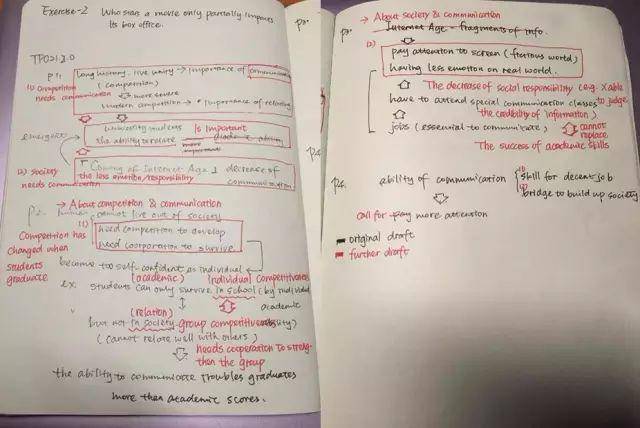 Exercise-2 Who stars a movie only partially impacts
its box office.
TPO21 2.0
P1: Long history, live unity → importance of communication
(1) Competition needs communication
(competition)
more severe
modern competition → importance of relating
emergent
university students Is Important
the ability to relate more important academic ability
(2) society needs communication
Coming of Internet Age decrease of
the less emotion/responsibility communication
→ About competition & communication
P2. human cannot live out of society
(1)
need competition to develop
need cooporation to survive
Competition has
changed when
students
graduate
become too self-confident as individual
(academic) Individual Competitiveness
ex. students can only survive in school (by individual
academic
(relation) ability)
but not in society-group competitiveness
(cannot relate well with others)
needs cooperation to streng-
then the group
the ability to communicate troubles graduates
more than academic scores.
P3.
→ About society & communication
Internet Age - fragments of info.
(2)
pay attention to screen (fictious world)
having less emotion on real world.
The decrease of social responsibility (e.g.
have to attend special communication classes to judge
the credibility of information)
jobs (essential to communicate) cannot
replace
The success of academic skills
P4.
ability of communication (1) skill for decent job
(2) bridge to build up society
call for pay more attention
original draft
further draft